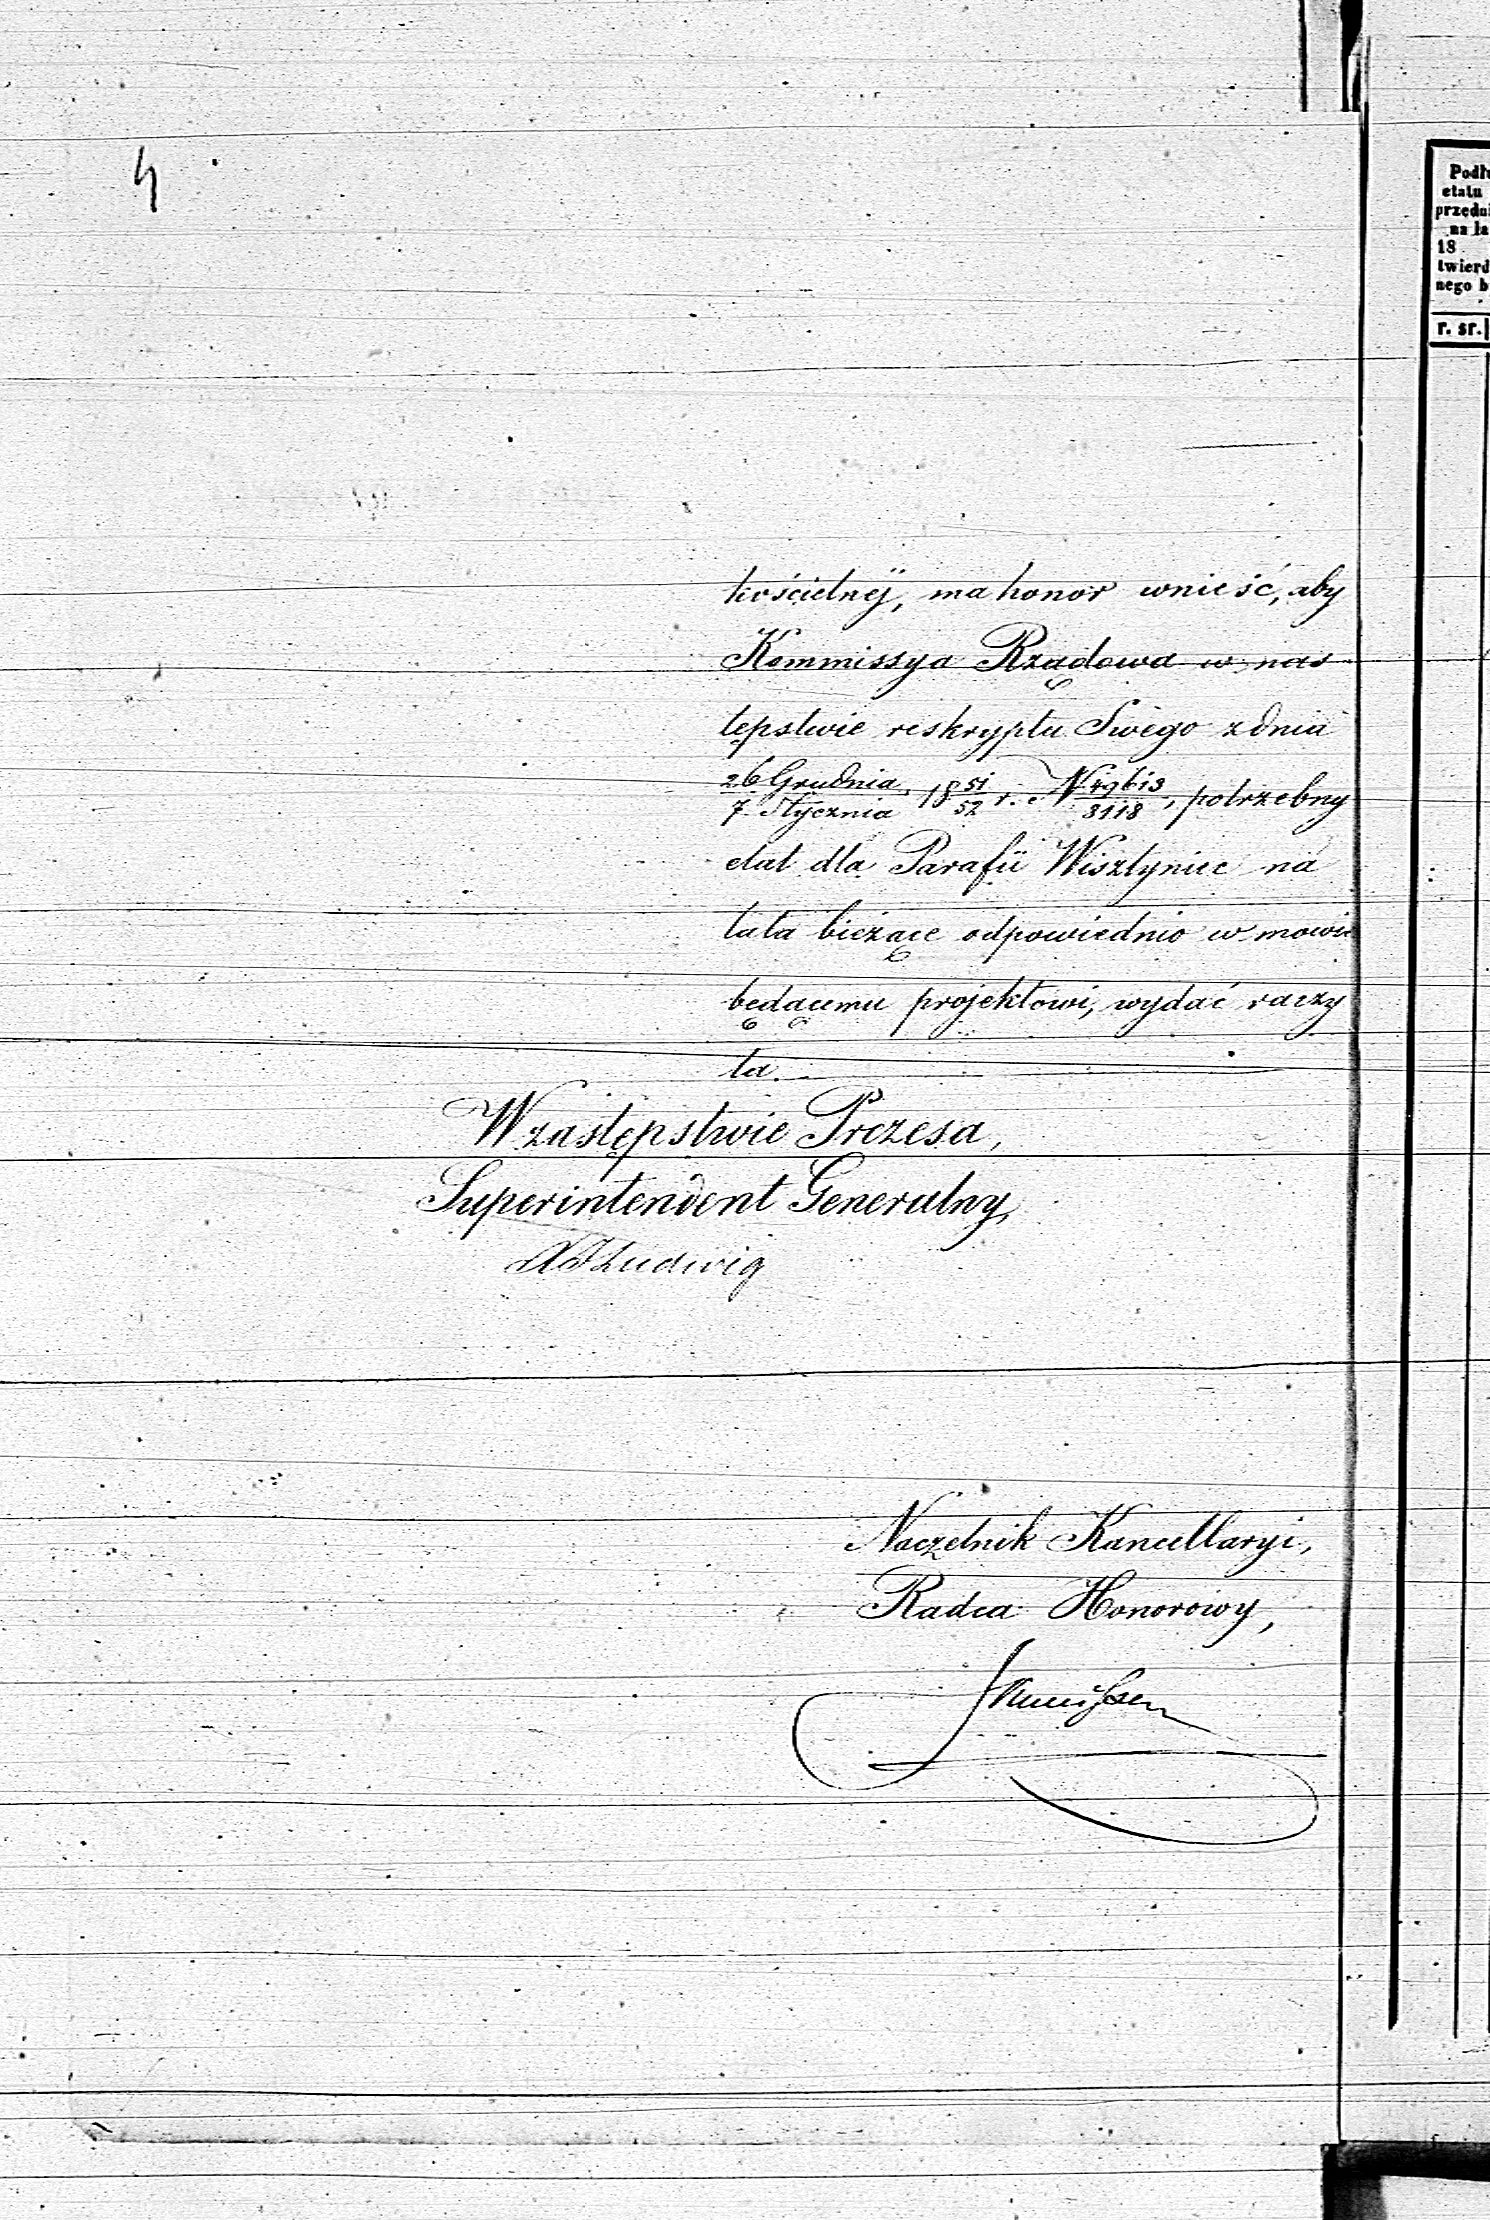 4
kościelnéj, ma honor wnieść, aby
Kommissya Rządowa w nas
tępstwie reskryptu Swego z dnia
26 Grudnia / 7 Stycznia 18 51/52 r. N 49613/3118, potrzebny
etat dla Parafii Wisztyniec na
lata bieżące odpowiednio w mowie
będącemu projektowi, wydać raczy
ła.
W zastępstwie Prezesa,
Superintendent Generalny,
Ludwig
Naczelnik Kancellaryi,
Radca Honorowy,
Podłu
etatu
przedni
na la
18
twierd
nego b
r. sr.